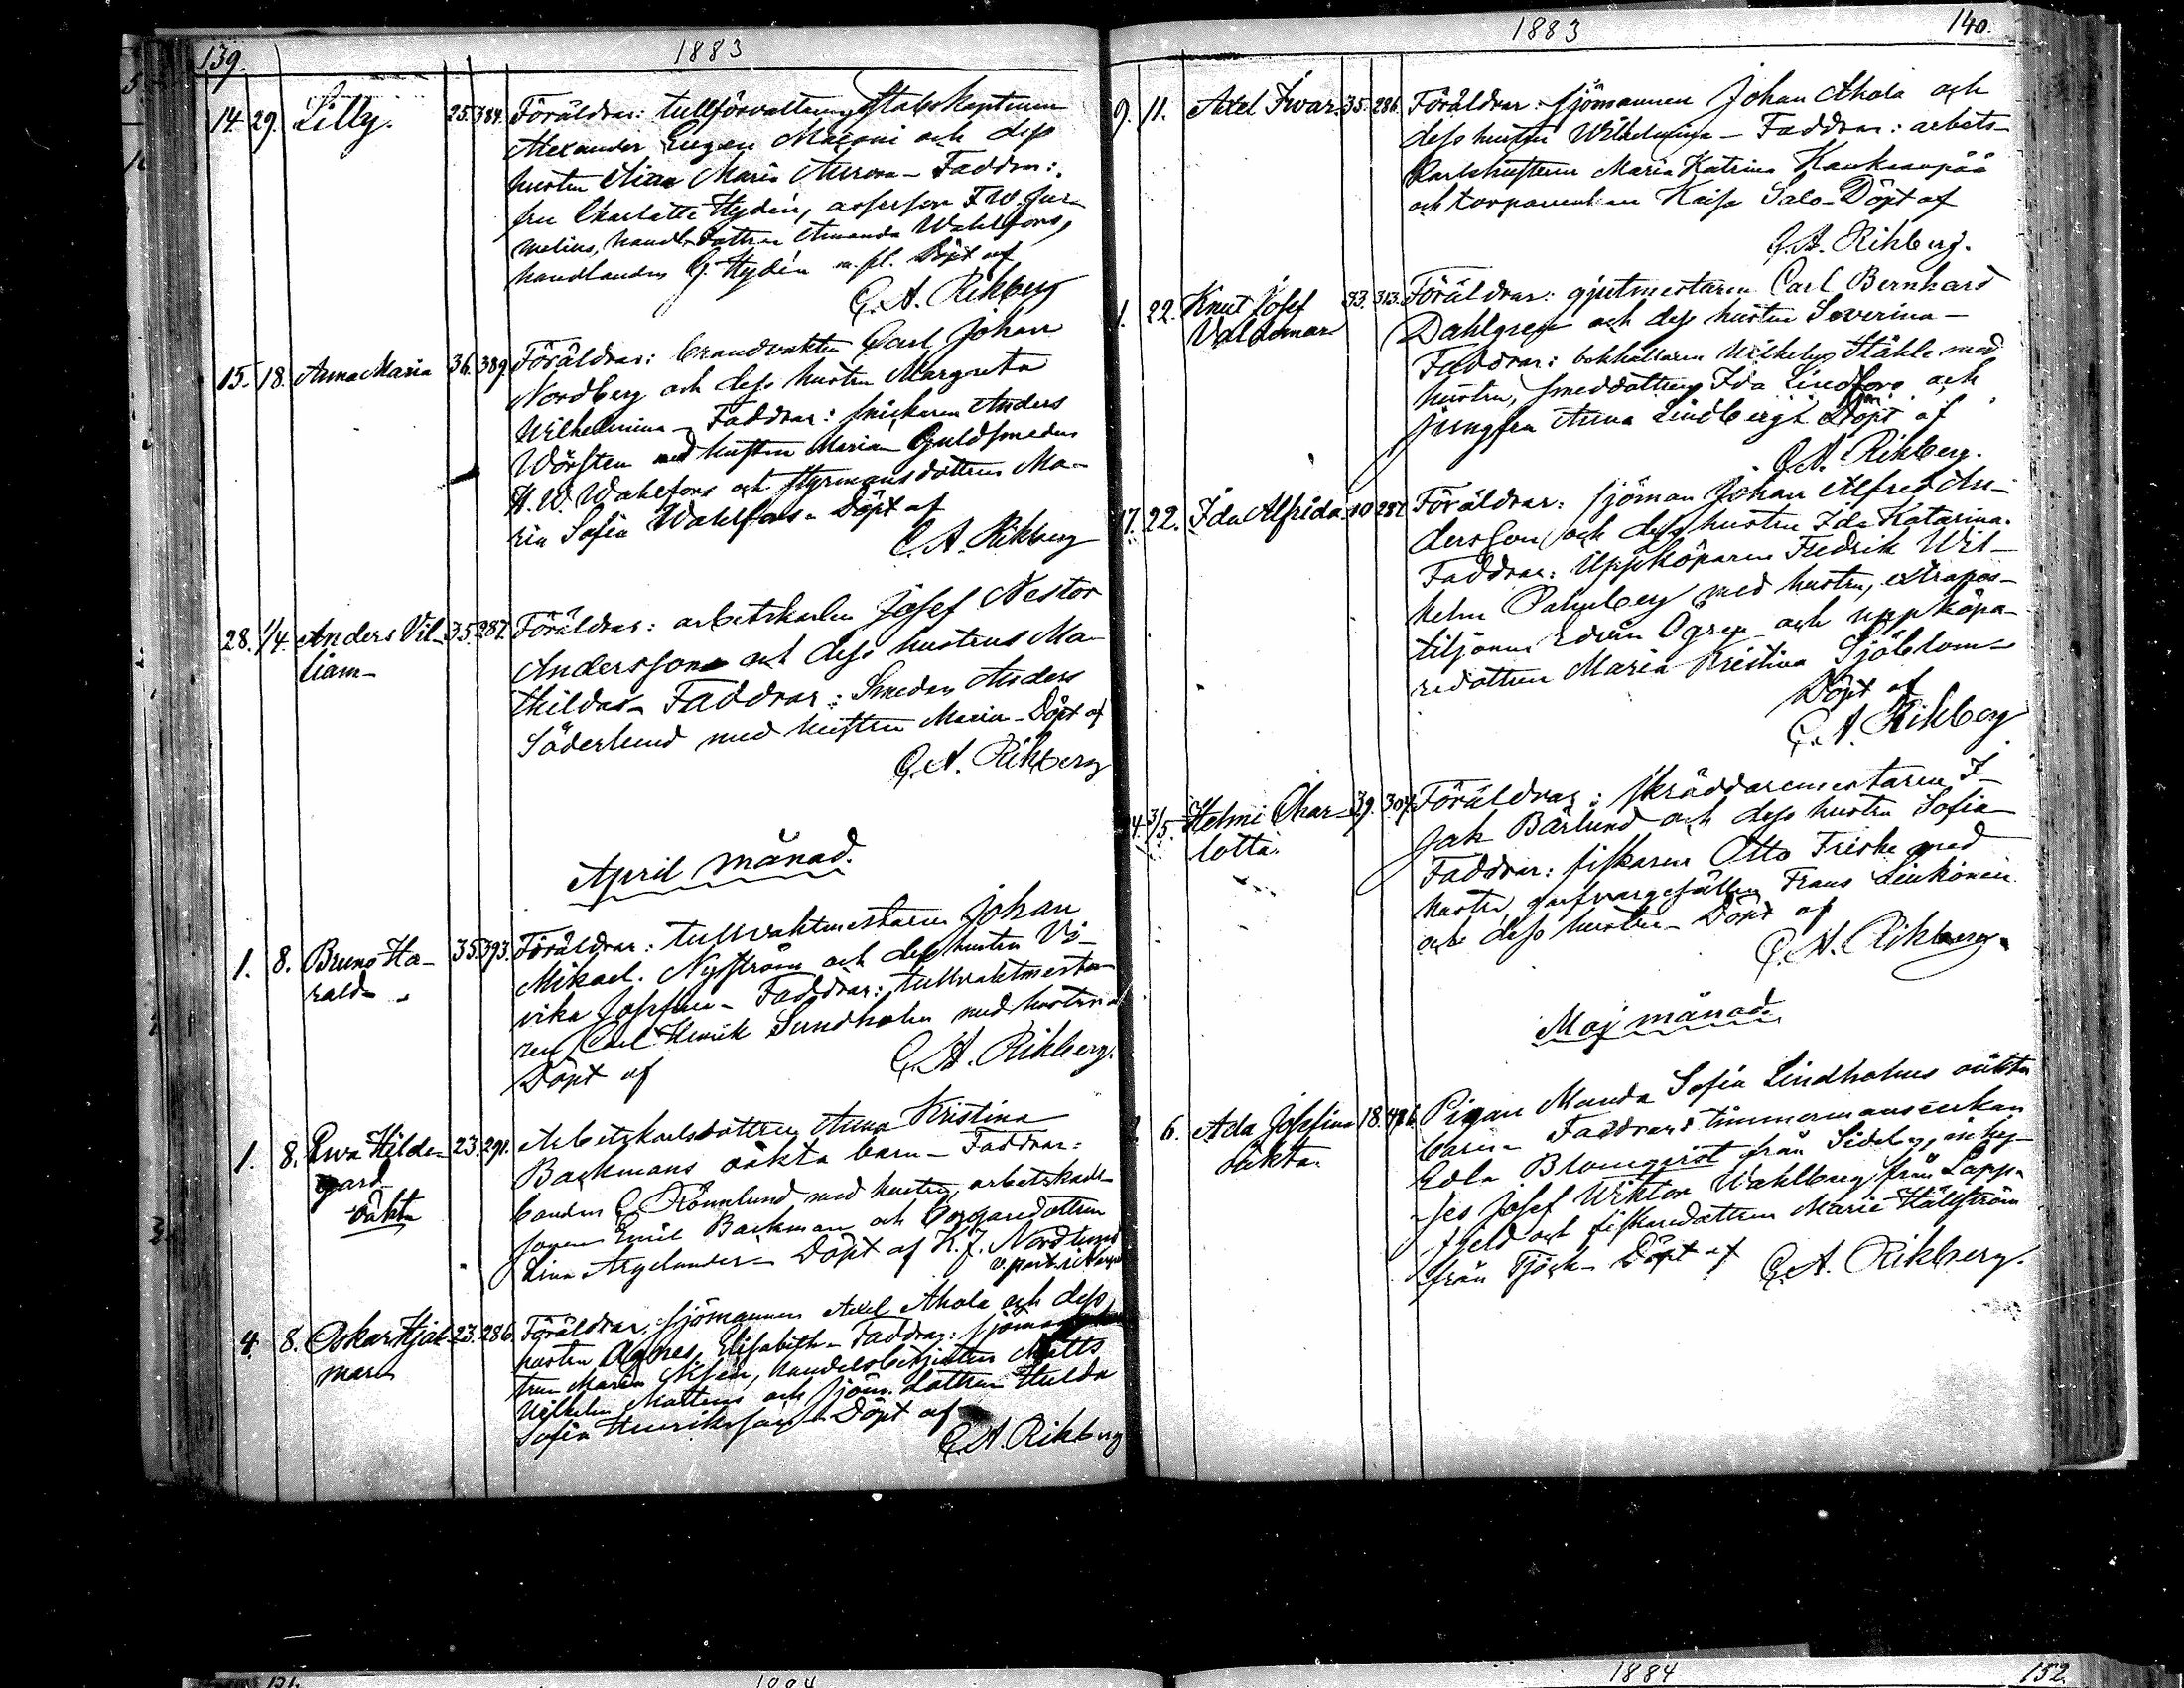 139.
1883
14. 29. Lilly. 25. 384. Föräldrar: tullförvaltaren, Stabskaptenen
Alexander Eugen och dess
hustru Maria Aurora - Faddrar:
fru Charlotte Hydén, assessor F W.
handl. dottren Amanda Wahlfors,
handlanden G. Hydén m. fl. Döpt af
C. A. Rikberg
15. 18. Anna Maria 36. 389. Föräldrar: brandvakten Carl Johan
Nordberg och dess hustru Margreta
Wilhelmina - Faddrar: snickaren Anders
Wörsten med hustru Maria Guldsmeden
H. W. Wahlfors och styrmansdottren Ma-
ria Sofia Wahlfors - Döpt af
C. A. Rikberg
28. 1/4. Anders Vil- 35. 287. Föräldrar: arbetskarlen Josef Nestor
liam - Andersson och dess hustrus Ma-
thildas - Faddrar: Smeden Anders
Söderlund med hustru Maria - Döpt af
C. A. Rikberg
April månad.
1. 8. Bruno Ha- 35. 393. Föräldrar: tullvaktmestaren Johan
rald - Mikael. Nyström och dess hustru Vi-
vika Josefina - Faddrar: tullvaktmesta-
ren Carl Henrik Sundholm med hustru
Döpt af C. A. Rikberg.
1. 8. Hilde- 23. 291. Arbetskarlsdottren Anna Kristina
gard Backmans oäkta barn - Faddrar:
oäkta bonden C Rönnlund med hustru, arbetskarls-
sonen Emil Backman och borgaredottren
Lina Argelander - Döpt af K. J. Nordlund
v. past. i
4. 8. Oskar Hjal- 23. 286. Föräldrar: sjömannen Axel Ahola och dess
mar hustru Agnes, Elisabeth - Faddrar:
Maria handelsbetjenten Matts
Wilhelm Mattens och sjöm. dottren Hulda
Sofia Henriksson - Döpt af
C. A. Rikberg
1883
140.
9. 11. Axel Ivar. 35. 286. Föräldrar: sjömannen Johan Ahola och
dess hustru Wilhelmina - Faddrar: arbets-
karlshustrun Maria Katrina Kankaanpää
och Kaisa Salo - Döpt af
C. A. Rikberg.
22. Knut Josef 33. 313. Föräldrar: gjutmestaren Carl Bernhard
Valdemar Dahlgren och dess hustru Severina -
Faddrar: bokhållaren Wilhelm Ståhle med
hustru, smeddottren Ida Lindfors och
jungfru Anna Lindberg - Döpt af
C. A. Rikberg.
17. 22. Ida Alfrida 287. Föräldrar: sjöman Johan Alfred An-
dersson och dess hustru Ida Katarina.
Faddrar: Uppköparen Fredrik Wil-
helm Palmberg med hustru, extrapos-
tiljonen Edvin Ogren och uppköpa-
redottren Maria Kristina Sjöblom -
Döpt af
C. A. Rikberg
3/5. Helmi Char- 39. 307. Föräldrar: skräddaremestaren I-
lotta. sak Bärlund och dess hustru Sofia
Faddrar: fiskaren Otto Friske med
hustru, garfvargesällen Frans Leukönen
och dess hustru - Döpt af
C. A. Rikberg.
Maj månad.
6. Ada Josefina 18. 486. Pigan Manda Sofia Lindholms oäkta
oäkta. barn - Faddrar: timmermansenkan
Edla Blomqvist från Sideby, inhy-
ses Josef Wiktor Wahlberg från Lapp-
fjeld och fiskaredottren Maria Hällström
från Tjöck - Döpt af C. A. Rikberg.
1884
1884
152.